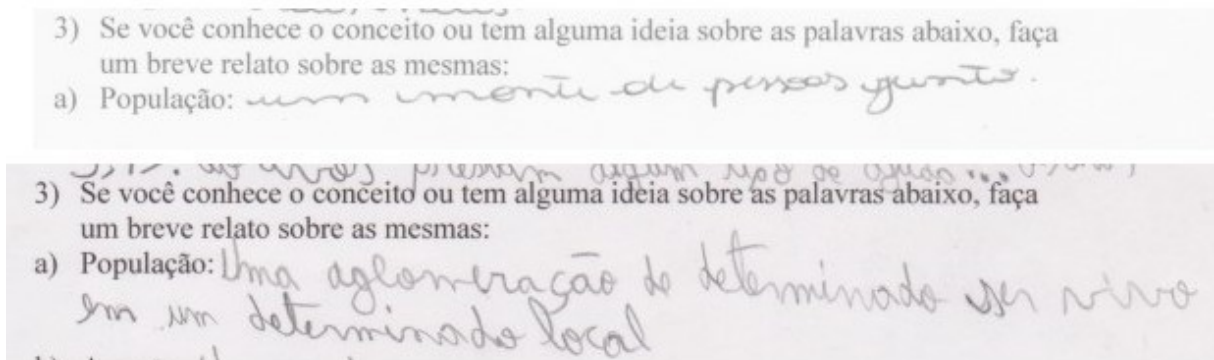 3) Se você conhece o conceito ou tem alguma ideia sobre as palavras abaixo, faça
um breve relato sobre as mesmas:
a) População: um monte de pessoas gunto.
prestam algum tipo de
3) Se você conhece o conceito ou tem alguma ideia sobre as palavras abaixo, faça
um breve relato sobre as mesmas:
a) População: Uma aglomeração de determinado ser vivo
em um determinado local